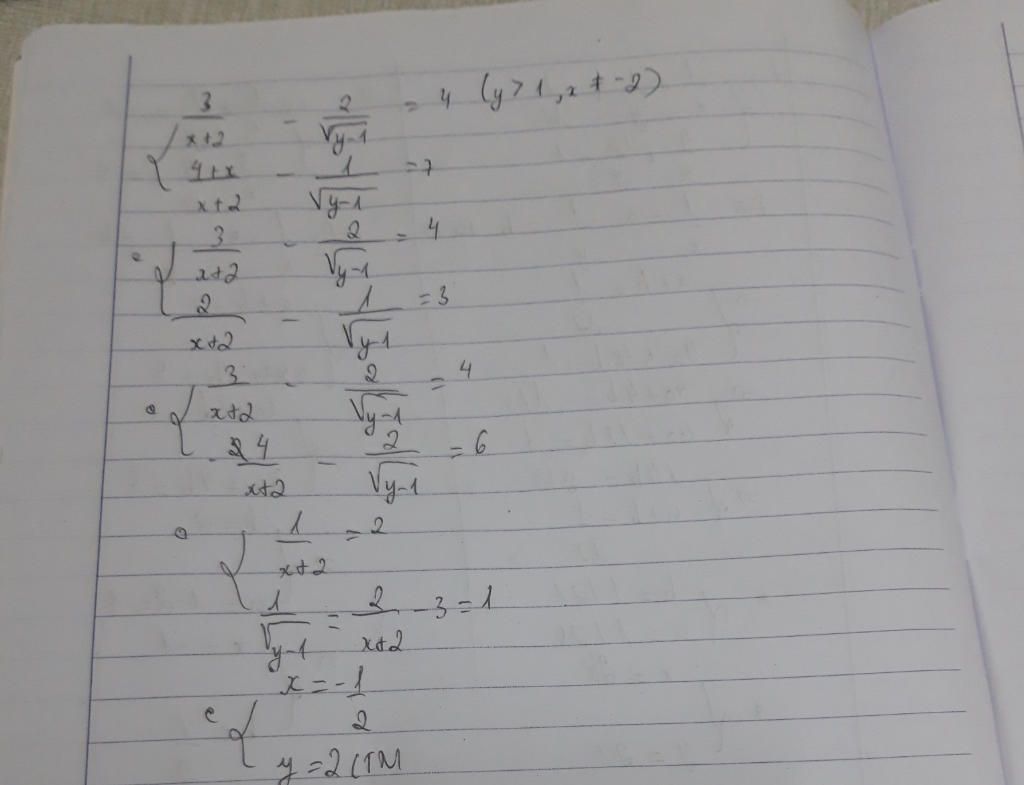 3/(x+2) - 2/√(y-1) = 4 (y > 1, x ≠ -2)
(4+x)/(x+2) - 1/√(y-1) = 7
3/(x+2) - 2/√(y-1) = 4
2/(x+2) - 1/√(y-1) = 3
3/(x+2) - 2/√(y-1) = 4
4/(x+2) - 2/√(y-1) = 6
1/(x+2) = 2
1/√(y-1) = 2/(x+2) - 3 = 1
x = -1/2
y = 2 (TM